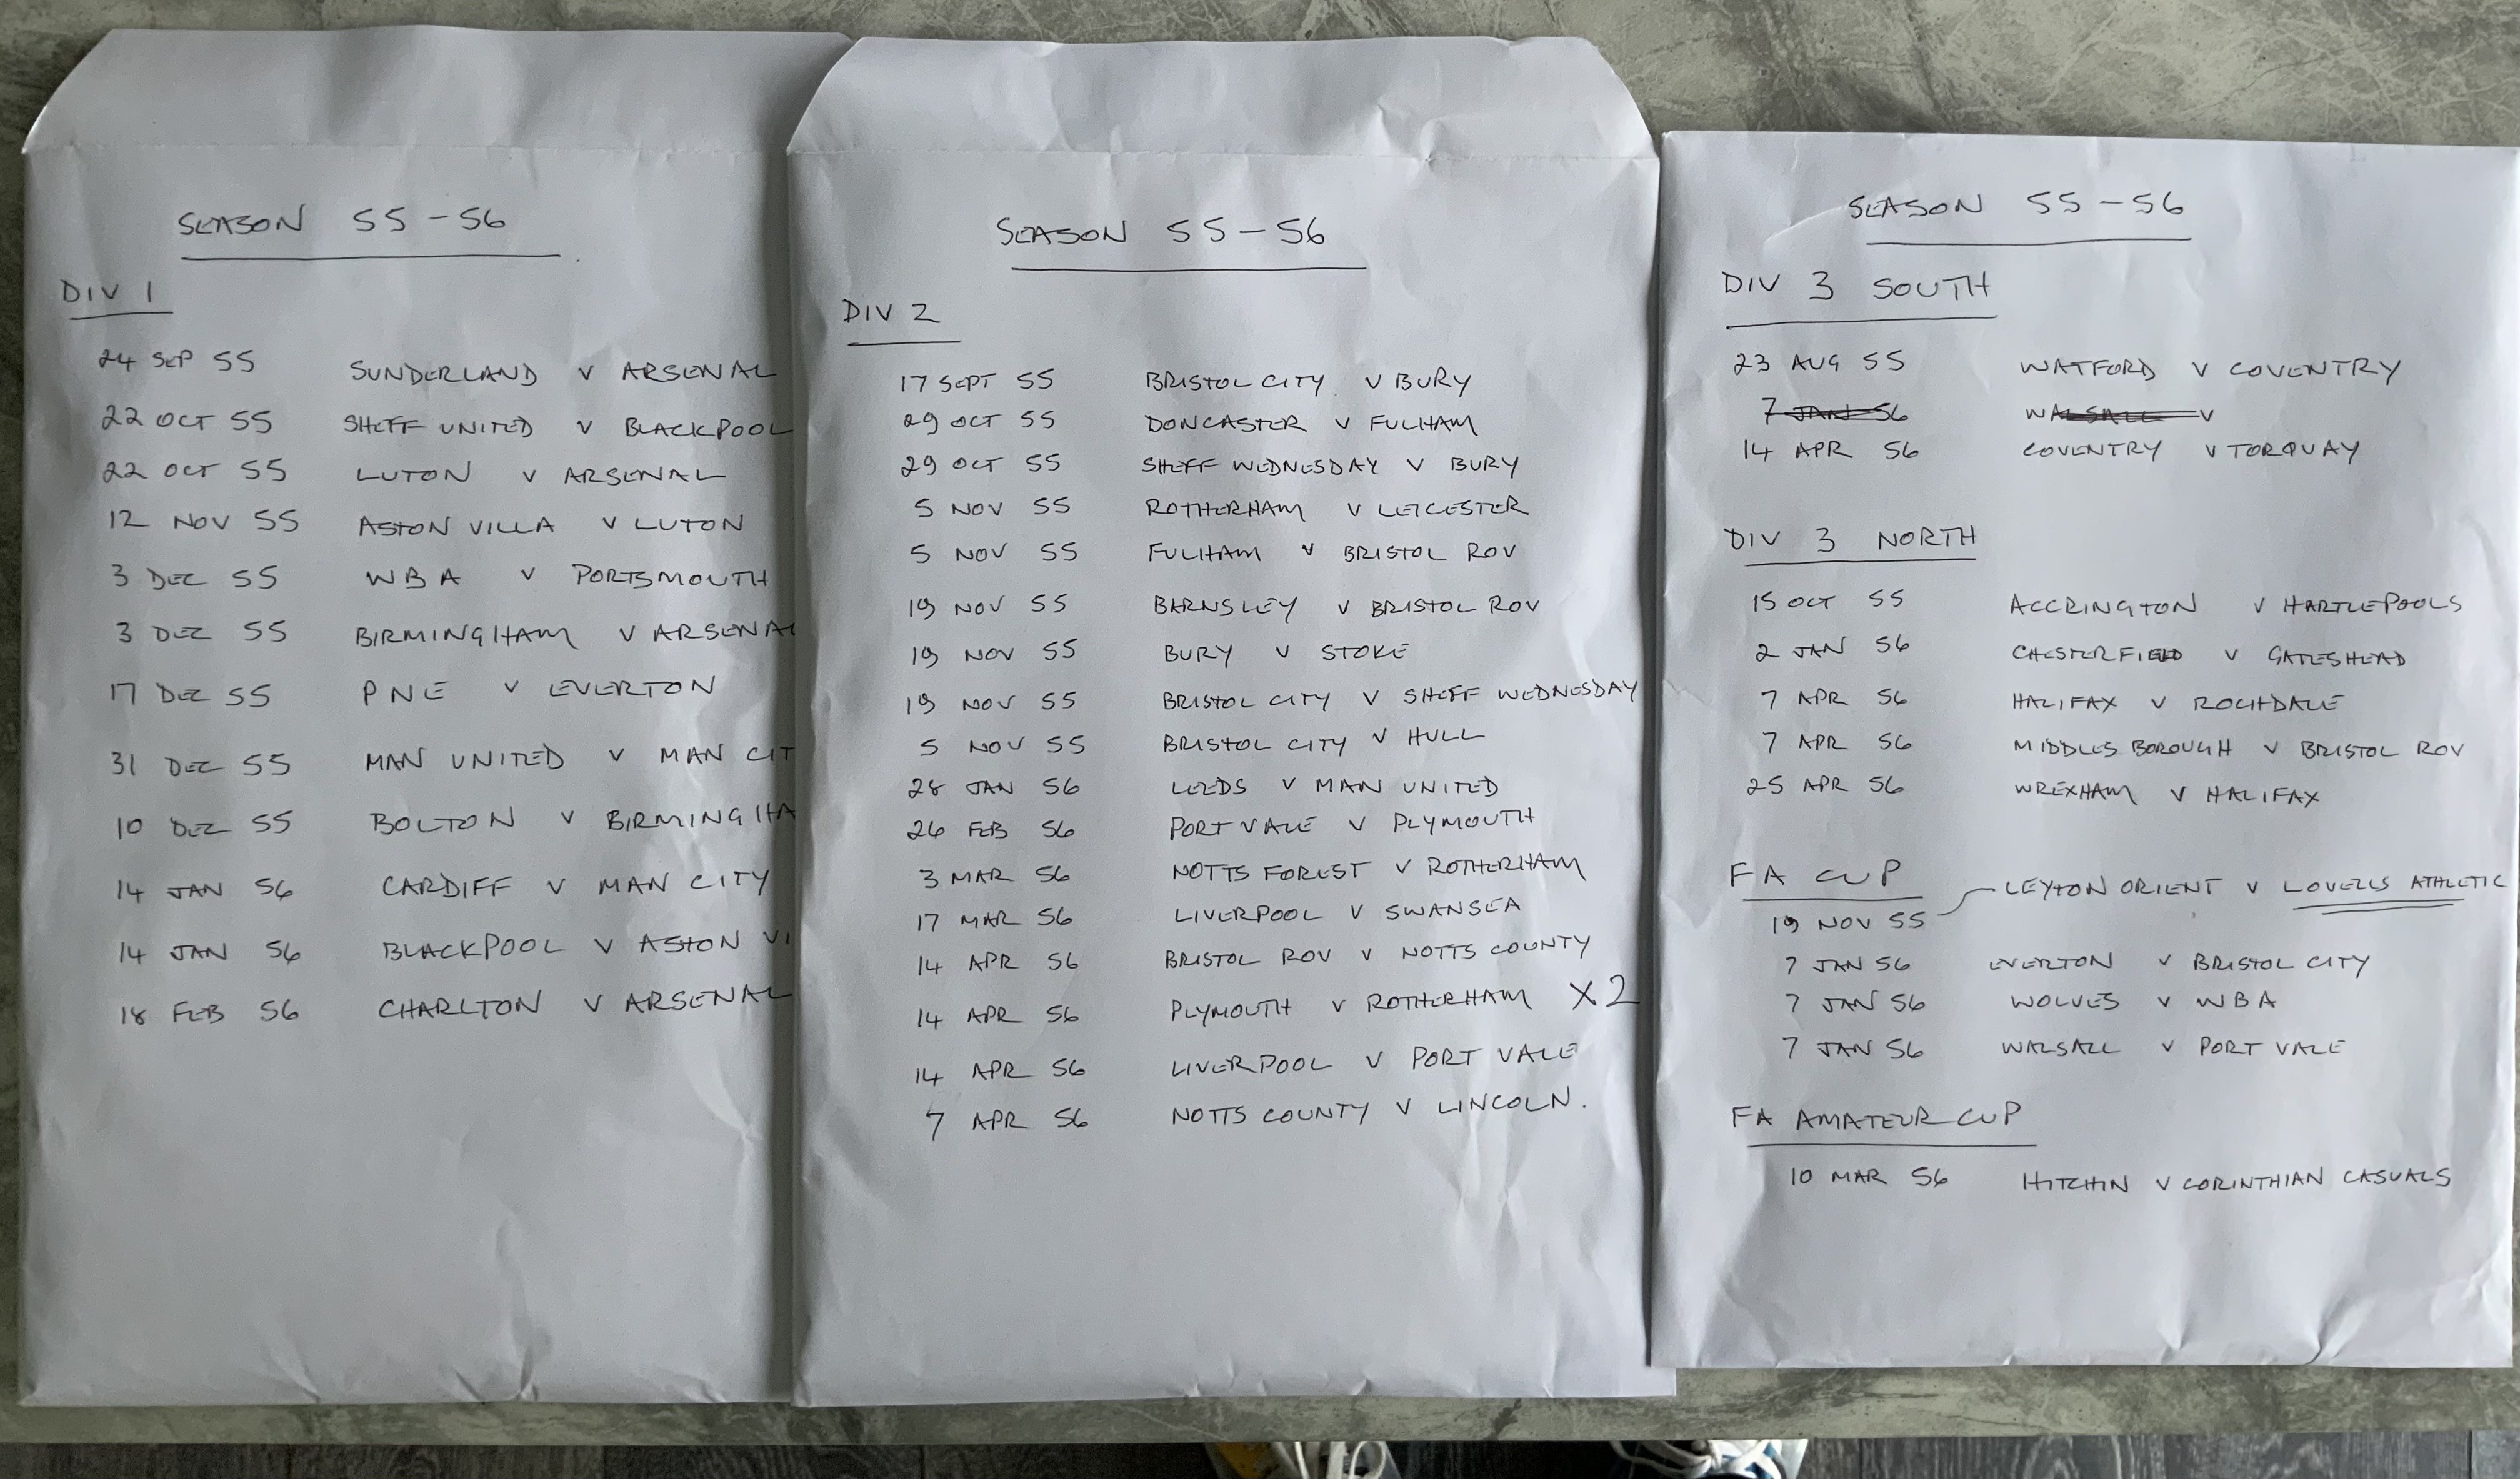 SEASON 55-56
DIV 1
24 SEP 55 SUNDERLAND V ARSENAL
22 OCT 55 SHEFF UNITED V BLACKPOOL
22 OCT 55 LUTON V ARSENAL
12 NOV 55 ASTON VILLA V LUTON
3 DEC 55 WBA V PORTSMOUTH
3 DEC 55 BIRMINGHAM V ARSENAL
17 DEC 55 PNE V EVERTON
31 DEC 55 MAN UNITED V MAN CIT
10 DEC 55 BOLTON V BIRMINGHA
14 JAN 56 CARDIFF V MAN CITY
14 JAN 56 BLACKPOOL V ASTON VI
18 FEB 56 CHARLTON V ARSENAL
SEASON 55-56
DIV 2
17 SEPT 55 BRISTOL CITY V BURY
29 OCT 55 DONCASTER V FULHAM
29 OCT 55 SHEFF WEDNESDAY V BURY
5 NOV 55 ROTHERHAM V LEICESTER
5 NOV 55 FULHAM V BRISTOL ROV
19 NOV 55 BARNSLEY V BRISTOL ROV
19 NOV 55 BURY V STOKE
19 NOV 55 BRISTOL CITY V SHEFF WEDNESDAY
5 NOV 55 BRISTOL CITY V HULL
28 JAN 56 LEEDS V MAN UNITED
26 FEB 56 PORT VALE V PLYMOUTH
3 MAR 56 NOTTS FOREST V ROTHERHAM
17 MAR 56 LIVERPOOL V SWANSEA
14 APR 56 BRISTOL ROV V NOTTS COUNTY
14 APR 56 PLYMOUTH V ROTHERHAM X2
14 APR 56 LIVERPOOL V PORT VALE
7 APR 56 NOTTS COUNTY V LINCOLN.
SEASON 55-56
DIV 3 SOUTH
23 AUG 55 WATFORD V COVENTRY
7 JAN 56 WALSALL V
14 APR 56 COVENTRY V TORQUAY
DIV 3 NORTH
15 OCT 55 ACCRINGTON V HARTLEPOOLS
2 JAN 56 CHESTERFIELD V GATESHEAD
7 APR 56 HALIFAX V ROCHDALE
7 APR 56 MIDDLESBOROUGH V BRISTOL ROV
25 APR 56 WREXHAM V HALIFAX
FA CUP
19 NOV 55 LEYTON ORIENT V LOVELLS ATHLETIC
7 JAN 56 EVERTON V BRISTOL CITY
7 JAN 56 WOLVES V WBA
7 JAN 56 WALSALL V PORT VALE
FA AMATEUR CUP
10 MAR 56 HITCHIN V CORINTHIAN CASUALS